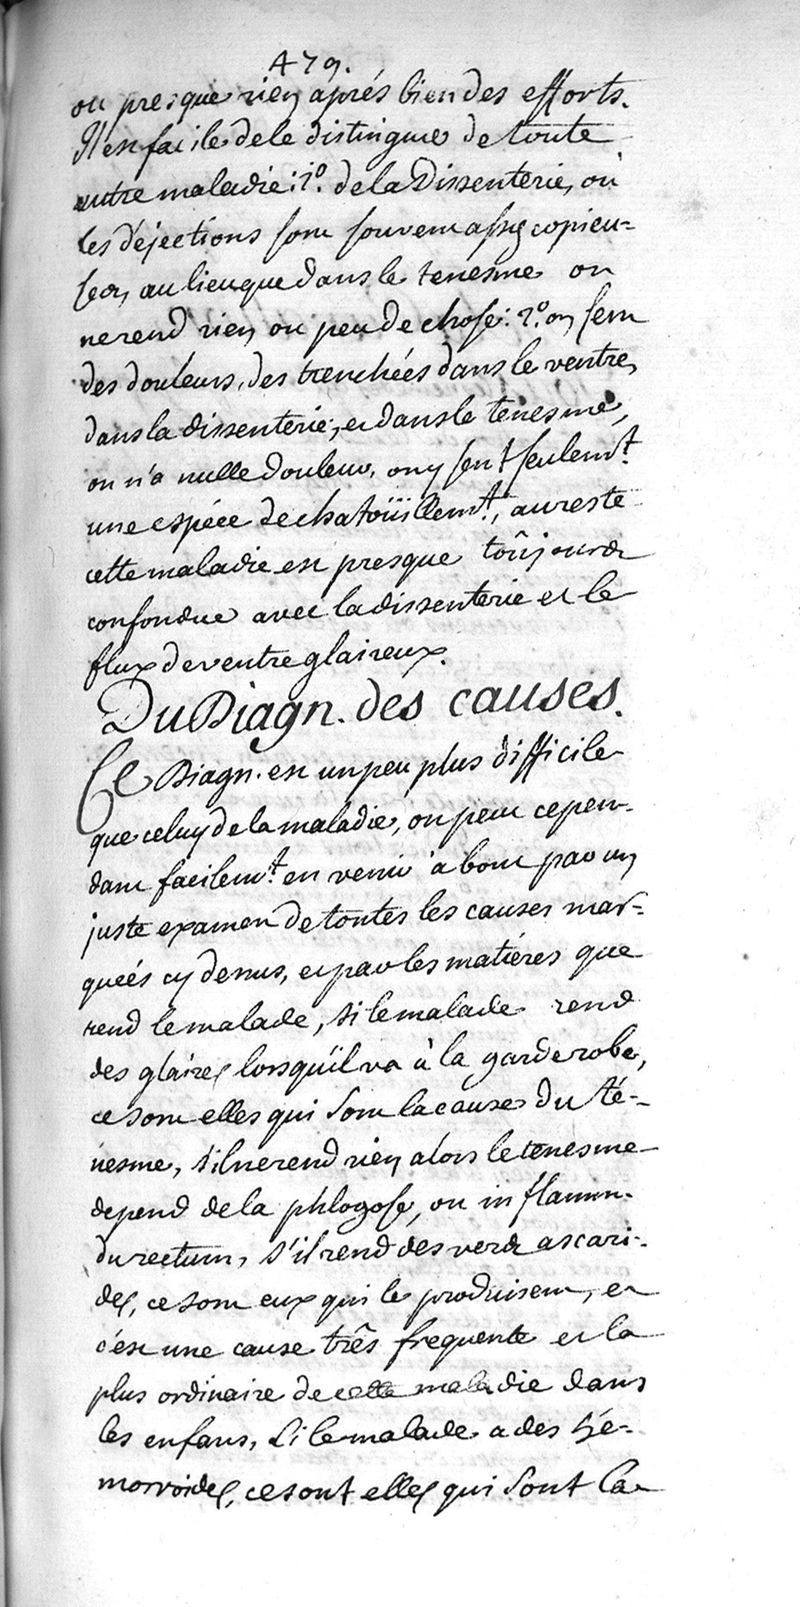 479.
ou presque rien aprés bien des efforts.
Il est facile de le distinguer de toute
autre maladie: 1º. de la Dissenterie, où
les déjections sont souvent assez copieu=
ses, au lieu que dans le tenesme on
ne rend rien ou peu de chose: 2º. on sent
des douleurs, des trenchées dans le ventre,
dans la dissenterie, et dans le tenesme,
on n'a nulle douleur, on y sent seulemt.
une espéce de chatoüillemt., au reste
cette maladie est presque toûjours
confondue avec la dissenterie et le
flux de ventre glaireux.
Du Diagn. des causes.
Ce Diagn. est un peu plus difficile
que celuy de la maladie, on peut cepen-
dant facilemt. en venir à bout par un
juste examen de toutes les causes mar=
queés cy dessus, et par les matiéres que
rend le malade, si le malade rend
des glaires lorsqu'il va à la garderobe,
ce sont elles qui sont la cause du té-
nesme, s'il ne rend rien alors le tenesme
depend de la phlogose, ou inflamm.
du rectum, s'il rend des vers ascari-
des, ce sont eux qui le produisent, et
c'est une cause trés frequente et la
plus ordinaire de cette maladie dans
les enfans, si le malade a des hé-
morroides, ce sont elles qui sont la